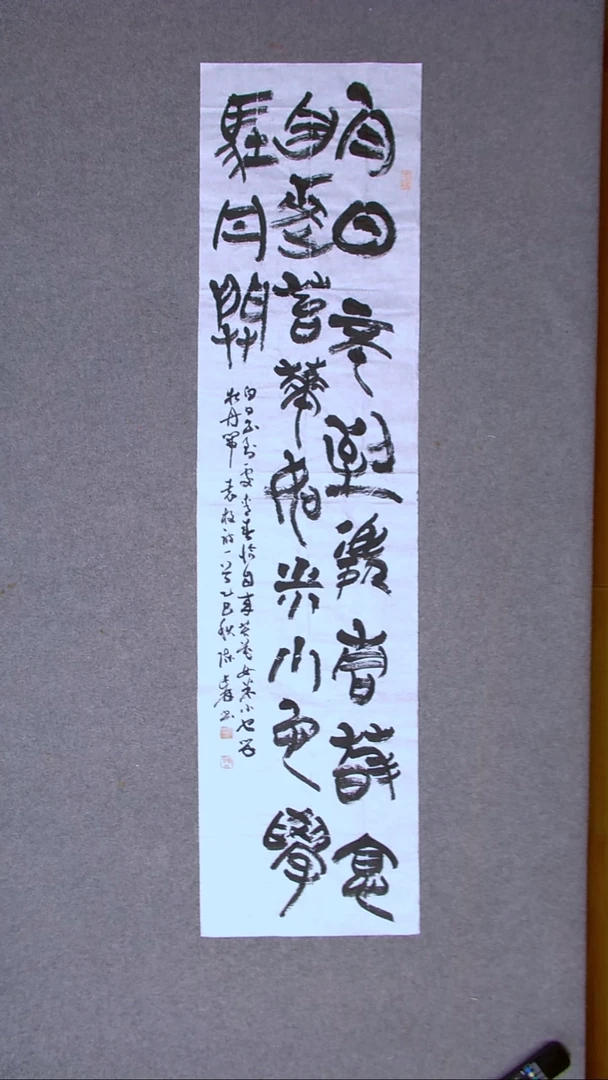 白日不到處青春恰
自來苔華如米小也學
牡丹開
白日不到處青春恰自来苔花如米小也学
牡丹開 袁枚詩一首乙巳秋陳 書